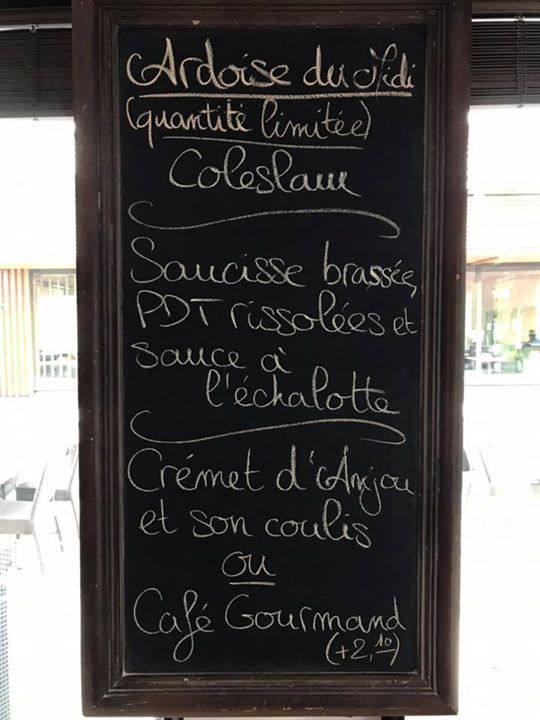 Ardoise du Midi
(quantité limitée)
Coleslaw
Saucisse brassée,
PDT rissolées et
sauce à
l'échalotte
Crémet d'Anjou
et son coulis
ou
Café Gourmand
(+2,10)